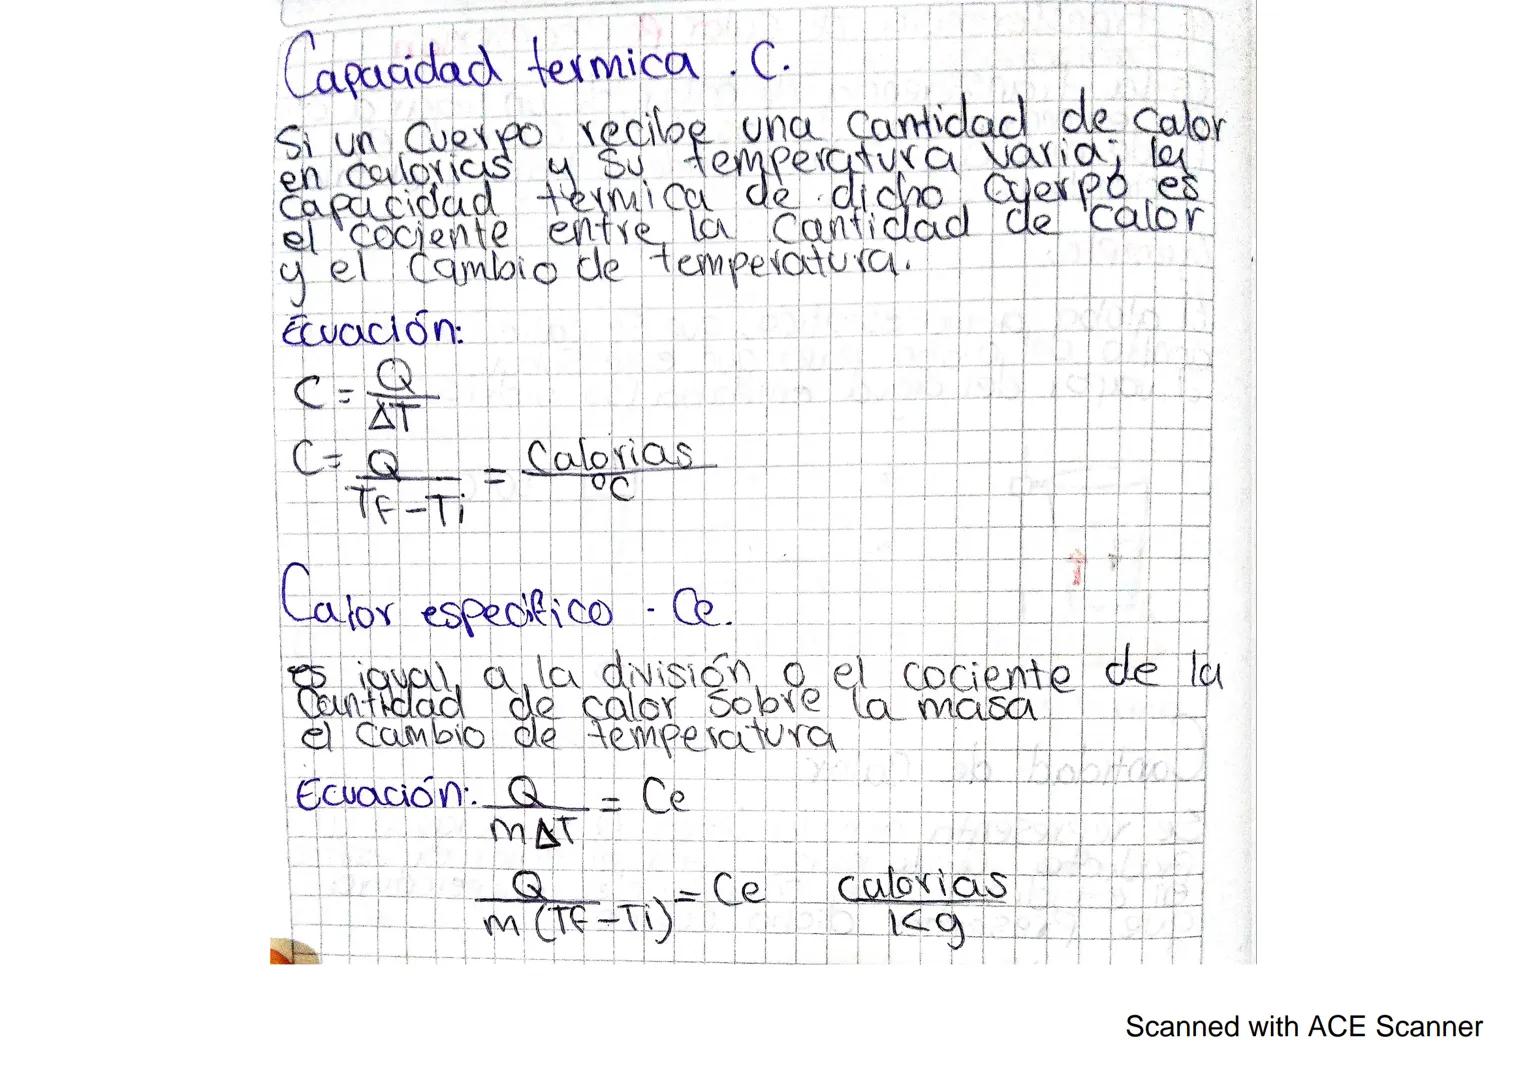 Capacidad termica . C.
Si un cuerpo recibe una cantidad de calor
en calorias y su temperatura varia; la
capacidad termica de dicho cuerpo es
el cociente entre la cantidad de calor
y el cambio de temperatura.
Ecuación:
C = Q / ΔT
C = Q / TF - Ti = Calorias / °C
Calor especifico - Ce.
es igual a la división o el cociente de la
Cantidad de calor sobre la masa
el cambio de temperatura
Ecuación: Q / mΔT = Ce
Q / m (TF - Ti) = Ce calorias / Kg
Scanned with ACE Scanner